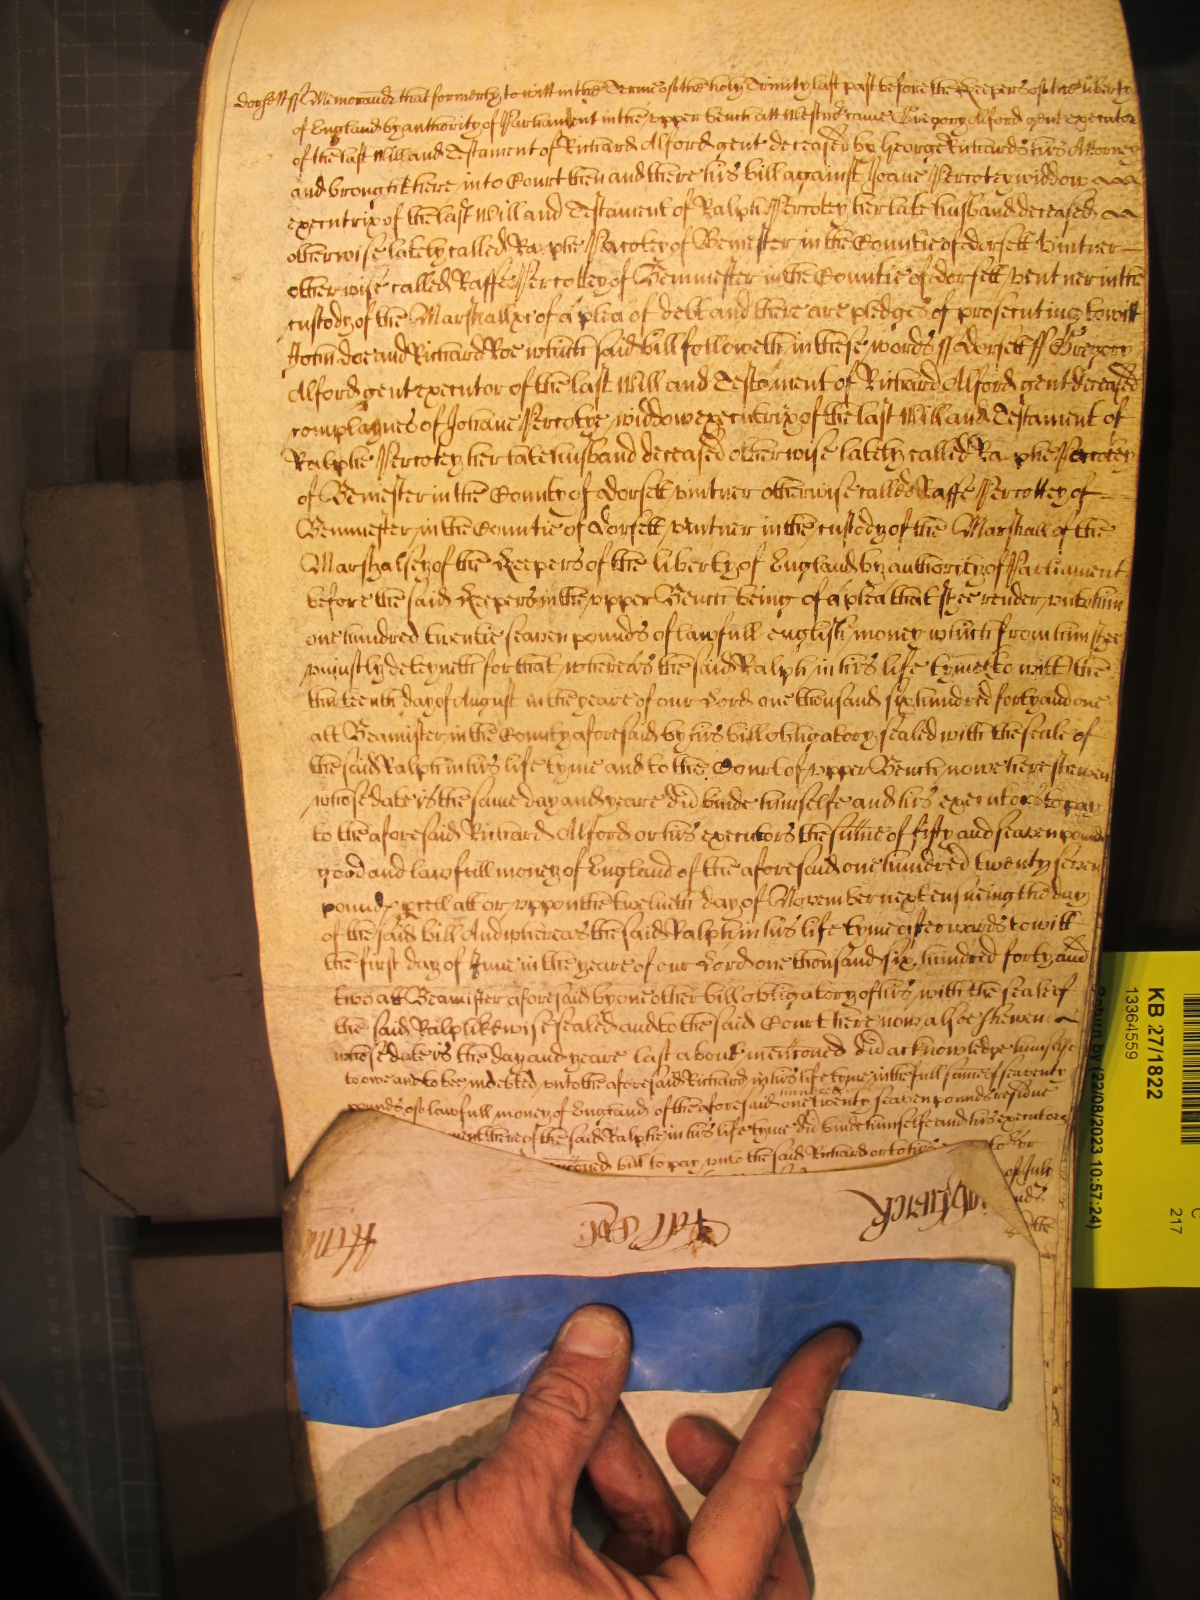 dorsett ss Memorand that formerly to witt in the Terme of the holy Trinity last past before the Keepers of the liberty
of England by authority of Parliament in the upper bench att Westmr came Gregory Alford gent executor
of the last Will and Testament of Richard Alford gent deceased by George Richards his Attorney
and brought here into Court then and there his bill against Joane Percotey widdow
executrix of the last Will and Testament of Ralph Percotey her late husband deceased
otherwise lately called Raphe Percotey of Bemester in the Countie of dorsett vintner
otherwise called Raffe Percottey of Bemmester in the Countie of dorsett ventner in the
custody of the Marshall &c of a plea of debt and there are pledges of prosecuting to witt
John doe and Richard Roe which said bill followeth in these words ss dorsett ss Gregory
Alford gent executor of the last Will and Testament of Richard Alford gent deceased
complaynes of Johane Percotye widdow executrix of the last Will and Testament of
Ralphe Percotey her late husband deceased otherwise lately called Raphe Percotey
of Bemester in the County of dorsett vintner otherwise called Raffe Percottey of
Bemmester in the Countie of dorsett vintner in the custody of the Marshall of the
Marshalsey of the Keepers of the liberty of England by authority of Parliament
before the said Keepers in the upper Bench being of a plea that shee render unto him
one hundred twentie seaven pounds of lawfull english money which from him shee
uniustly deteyneth for that whereas the said Ralph in his life tyme to witt the
thirteenth day of August in the yeare of our Lord one thousand six hundred forty and one
att Beamister in the County aforesaid by his bill obligatory sealed with the seale of
the said Ralph in his life tyme and to the Court of upper Bench nowe here shewen
whose date is the same day and yeare did binde himselfe and his executors to pay
to the aforesaid Richard Alford or his executors the summe of fifty and seaven pounds
good and lawfull money of England of the aforesaid one hundred twenty seven
pounds att or uppon the twelueth day of November next ensueing the day
of the said bill And whereas the said Ralph in his life tyme afterwards to witt
the first day of June in the yeare of our Lord one thousand six hundred forty and
two att Beamister aforesaid by one other bill obligatory of his with the seale of
the said Ralp likewise sealed and to the said Court here now alsoe shewen
whose date is the day and yeare last above mencioned did acknowledge himselfe
to owe and to bee indebted unto the aforesaid Richard in his life tyme in the full summe of seaventy
pounds of lawfull money of England of the aforesaid one hundred twenty seaven pounds residue
thereof the said Ralphe in his life tyme did binde himselfe and his executors
bill to pay unto the said Richard or to his
to or
of July
KB 27/1822
13364559
Return by (22/08/2023 10:57:24)
C
217